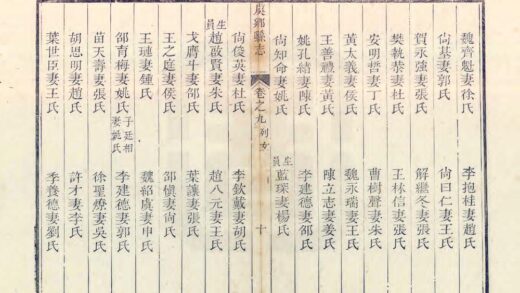 魏齊魁妻徐氏　李抱桂妻趙氏
尚基妻郭氏　尚曰仁妻王氏
賀永強妻張氏　解繼冬妻張氏
樊執恭妻杜氏　王林信妻張氏
安明哲妻丁氏　曹樹聲妻朱氏
黃太義妻侯氏　魏永瑞妻王氏
王善禮妻黃氏　陳立志妻姜氏
姚孔緒妻陳氏　李建德妻邵氏
尚知命妻姚氏　生員藍琛妻楊氏
虞鄉縣志　卷之九　列女　十
尚俊英妻杜氏　李欽戴妻胡氏
生員趙啟賢妻朱氏　趙八元妻王氏
戈膺斗妻邵氏　葉讓妻張氏
王之庭妻侯氏　邵慎妻尚氏
王璉妻鍾氏　魏紹虞妻申氏
邵育梅妻姚氏　子廷相妻姚氏　李建德妻郭氏
苗天壽妻張氏　徐聖療妻吳氏
胡思明妻趙氏　許才妻李氏
葉世臣妻王氏　季養德妻劉氏